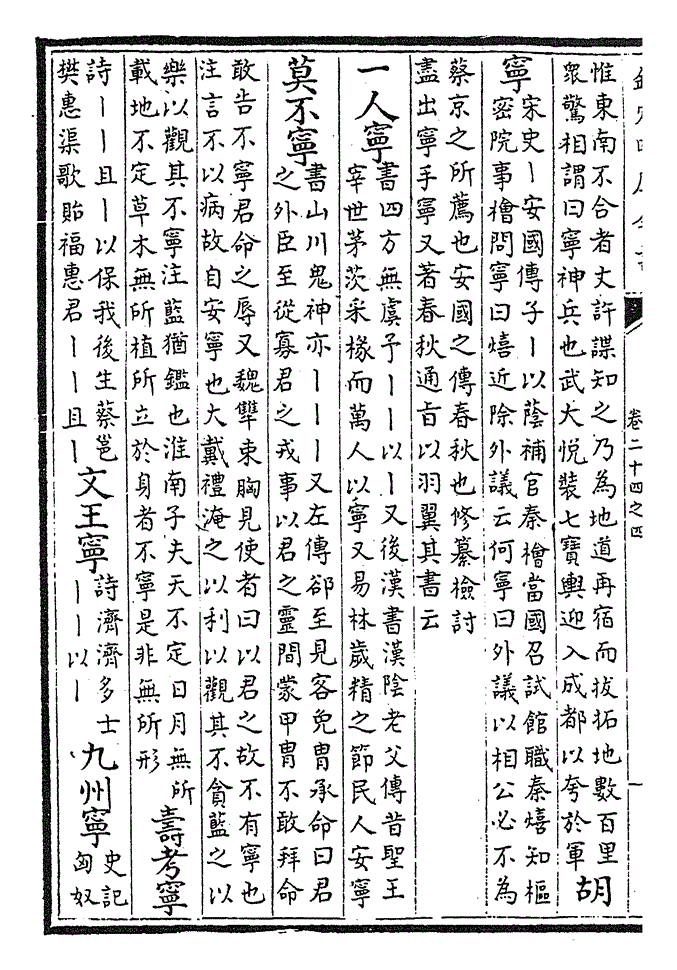 卷二十四之四
惟東南不合者丈許諜知之乃為地道再宿而拔拓地數百里
衆驚相謂曰寧神兵也武大悅裝七寶輿迎入成都以夸於軍
胡
寧
宋史丨安國傳子丨以蔭補官秦檜當國召試館職秦熺知樞
密院事檜問寧曰熺近除外議云何寧曰外議以相公必不為
蔡京之所薦也安國之傳春秋也修纂檢討
盡出寧手寧又著春秋通旨以羽翼其書云
一人寧
書四方無虞予丨丨以丨又後漢書漢陰老父傳昔聖王
宰世茅茨采椽而萬人以寧又易林歲精之節民人安寧
莫不寧
書山川鬼神亦丨丨丨又左傳郤至見客免胄承命曰君
之外臣至從寡君之戎事以君之靈間蒙甲胄不敢拜命
敢告不寧君命之辱又魏犨束胸見使者曰以君之故不有寧也
注言不以病故自安寧也大戴禮淹之以利以觀其不貪藍之以
樂以觀其不寧注藍猶鑑也淮南子夫天不定日月無所
載地不定草木無所植所立於身者不寧是非無所形
壽考寧
詩丨丨且丨以保我後生蔡邕
樊惠渠歌貽福惠君丨丨且丨
文王寧
詩濟濟多士
丨丨以丨
九州寧
史記
匈奴